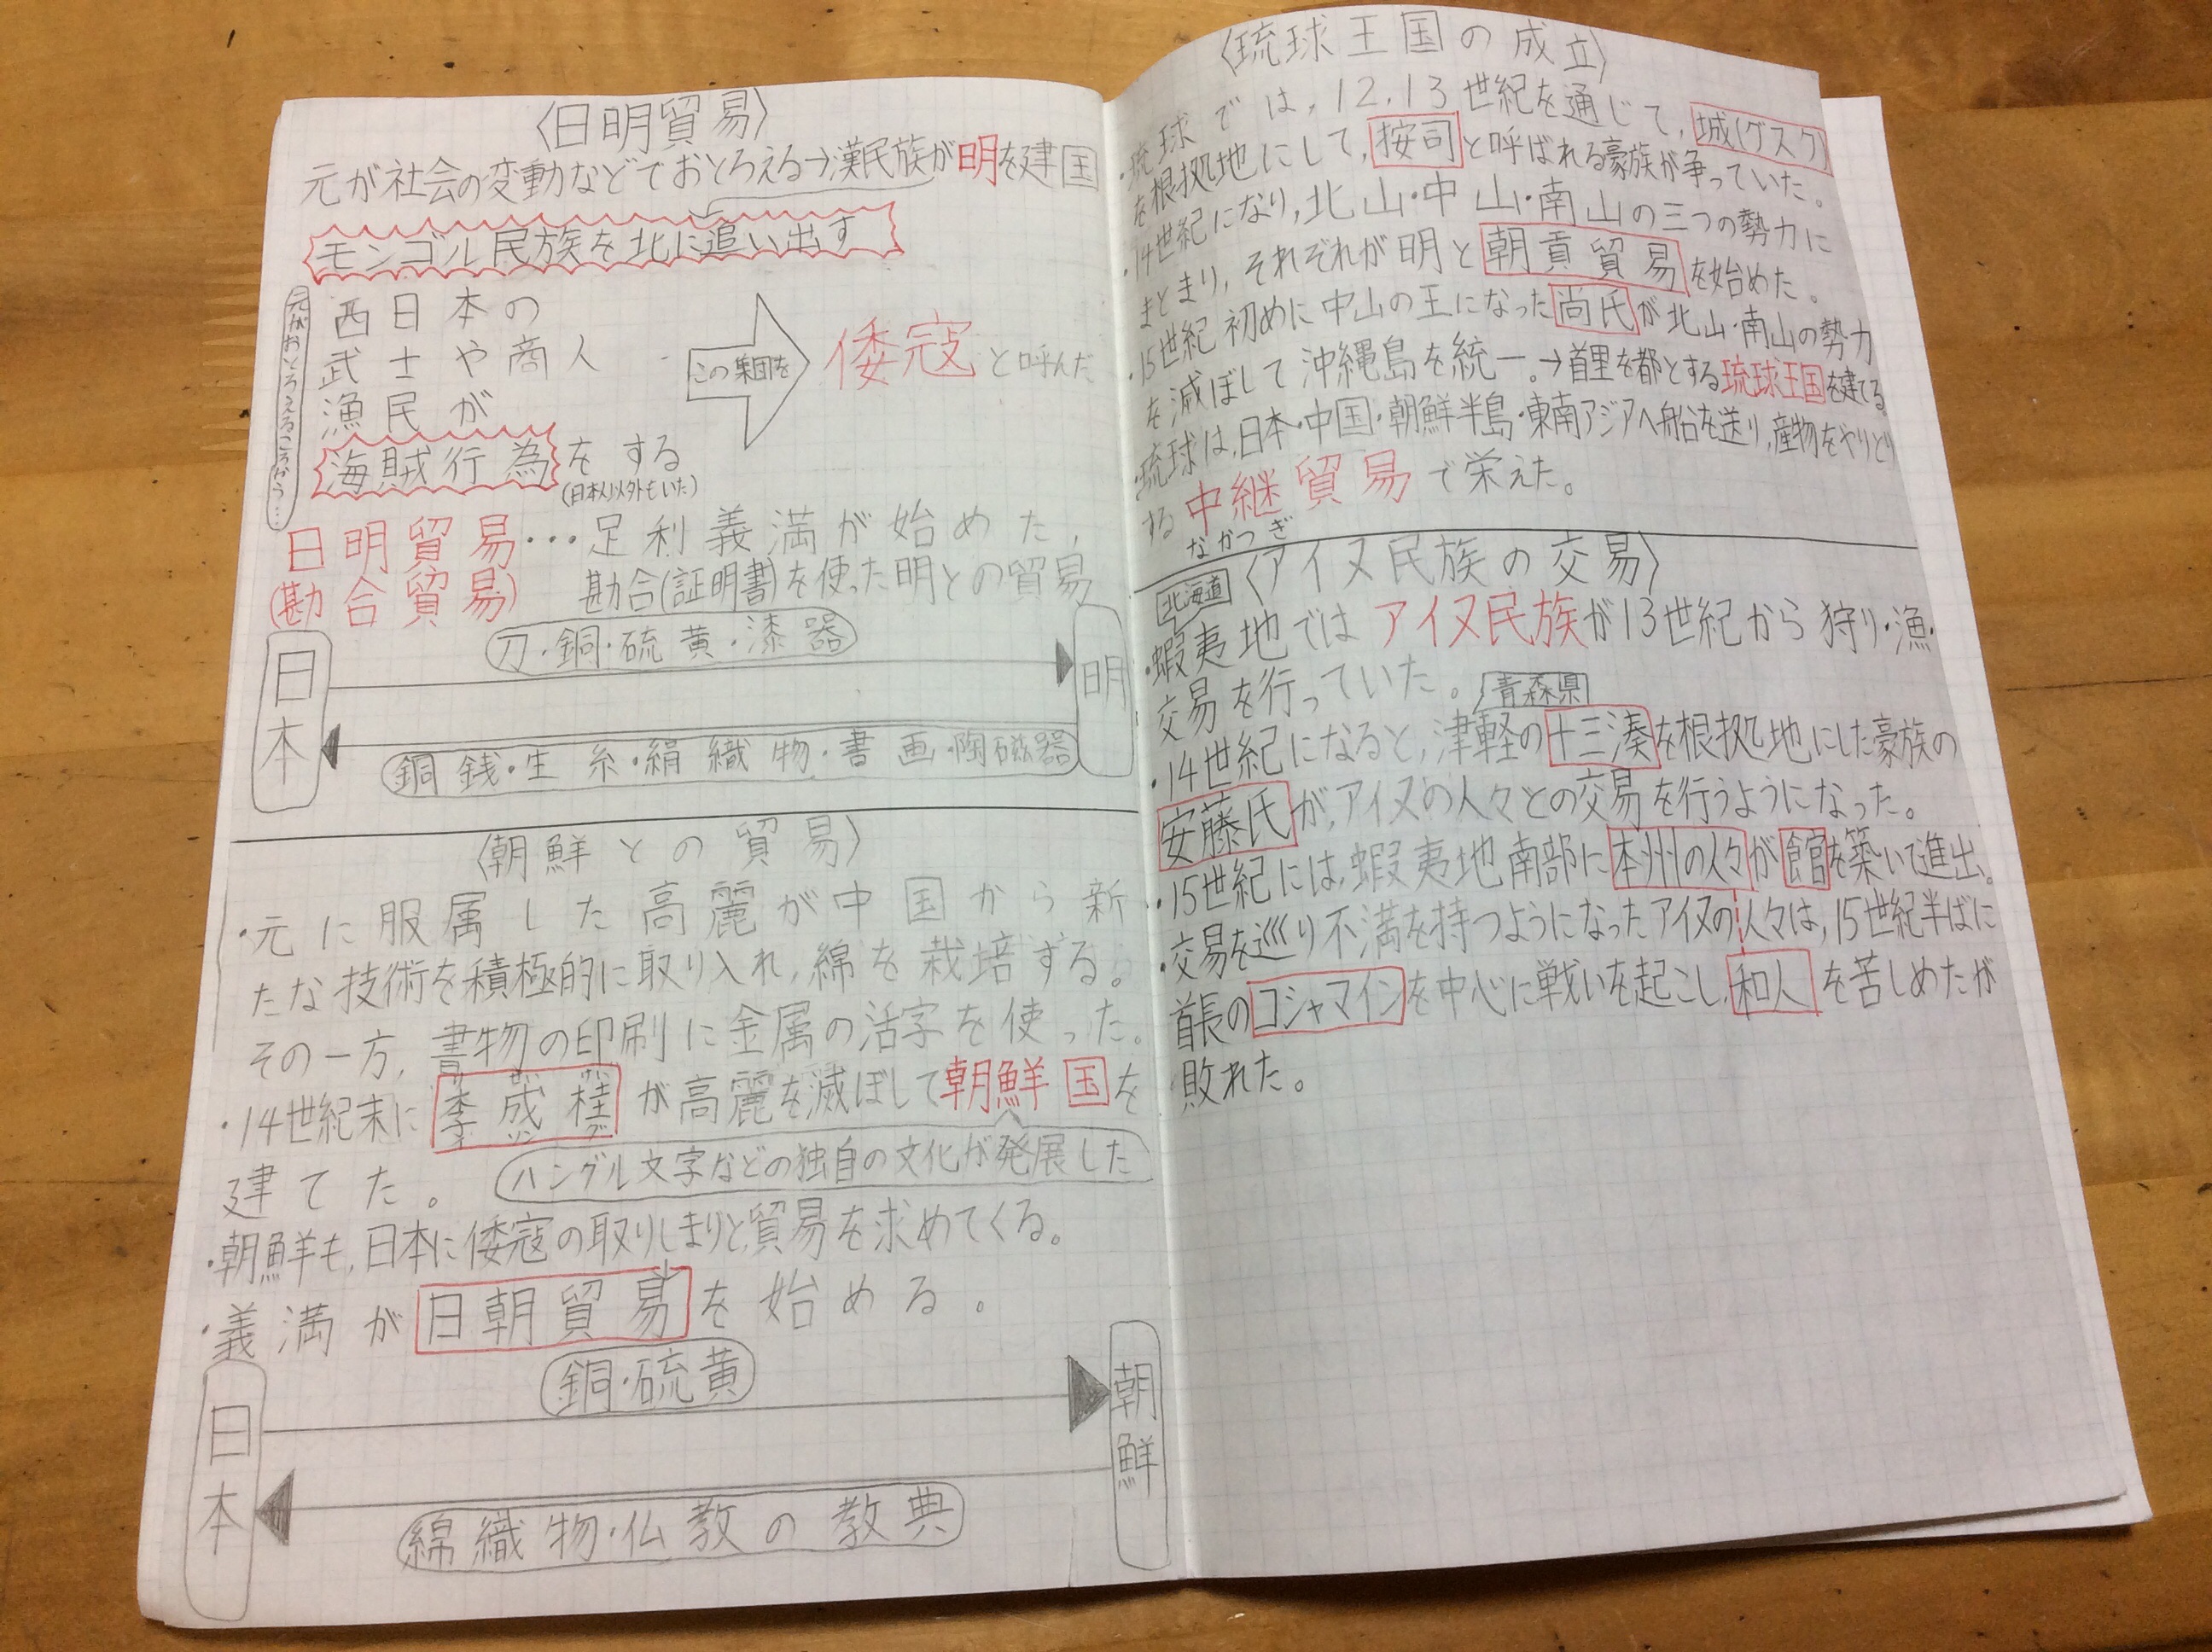 〈日明貿易〉
元が社会の変動などでおとろえる→漢民族が明を建国
モンゴル民族を北に追い出す
元がおとろえるころから…
西日本の
武士や商人
漁民が
海賊行為をする
(日本人以外もいた)
この集団を
倭寇と呼んだ
日明貿易…足利義満が始めた,
(勘合貿易) 勘合(証明書)を使った明との貿易
刀・銅・硫黄・漆器
日本
明
銅銭・生糸・絹織物・書画・陶磁器
〈朝鮮との貿易〉
・元に服属した高麗が中国から新
たな技術を積極的に取り入れ,綿を栽培する。
その一方,書物の印刷に金属の活字を使った。
・14世紀末に李成桂が高麗を滅ぼして朝鮮国を
イ ソン グ
建てた。
ハングル文字などの独自の文化が発展した
・朝鮮も,日本に倭寇の取りしまりと,貿易を求めてくる。
・義満が日朝貿易を始める。
銅・硫黄
日本
朝鮮
綿織物・仏教の教典
〈琉球王国の成立〉
・琉球では,12,13世紀を通じて,城(グスク)
を根拠地にして,按司と呼ばれる豪族が争っていた。
・14世紀になり,北山・中山・南山の三つの勢力に
まとまり,それぞれが明と朝貢貿易を始めた。
・15世紀初めに中山の王になった尚氏が北山・南山の勢力
を滅ぼして沖縄島を統一。→首里を都とする琉球王国を建てる
・琉球は,日本・中国・朝鮮半島・東南アジアへ船を送り,産物をやりとり
する中継貿易で栄えた。
なかつぎ
〈アイヌ民族の交易〉
北海道
・蝦夷地ではアイヌ民族が13世紀から狩り・漁・
交易を行っていた。
青森県
・14世紀になると,津軽の十三湊を根拠地にした豪族の
安藤氏が,アイヌの人々との交易を行うようになった。
・15世紀には,蝦夷地南部に本州の人々が館を築いて進出。
・交易を巡り不満を持つようになったアイヌの人々は,15世紀半ばに
首長のコシャマインを中心に戦いを起こし,和人を苦しめたが
敗れた。